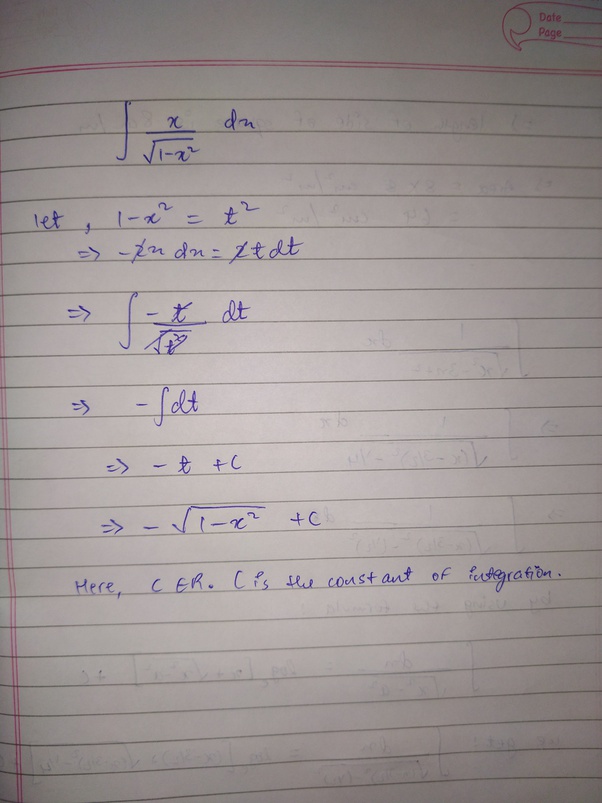 Date
Page
∫ x/√(1-x²) dx
let, 1-x² = t²
=> -2x dx = 2t dt
=> ∫ -t/√t² dt
=> -∫dt
=> -t + C
=> -√(1-x²) + C
Here, C ∈ R. C is the constant of integration.